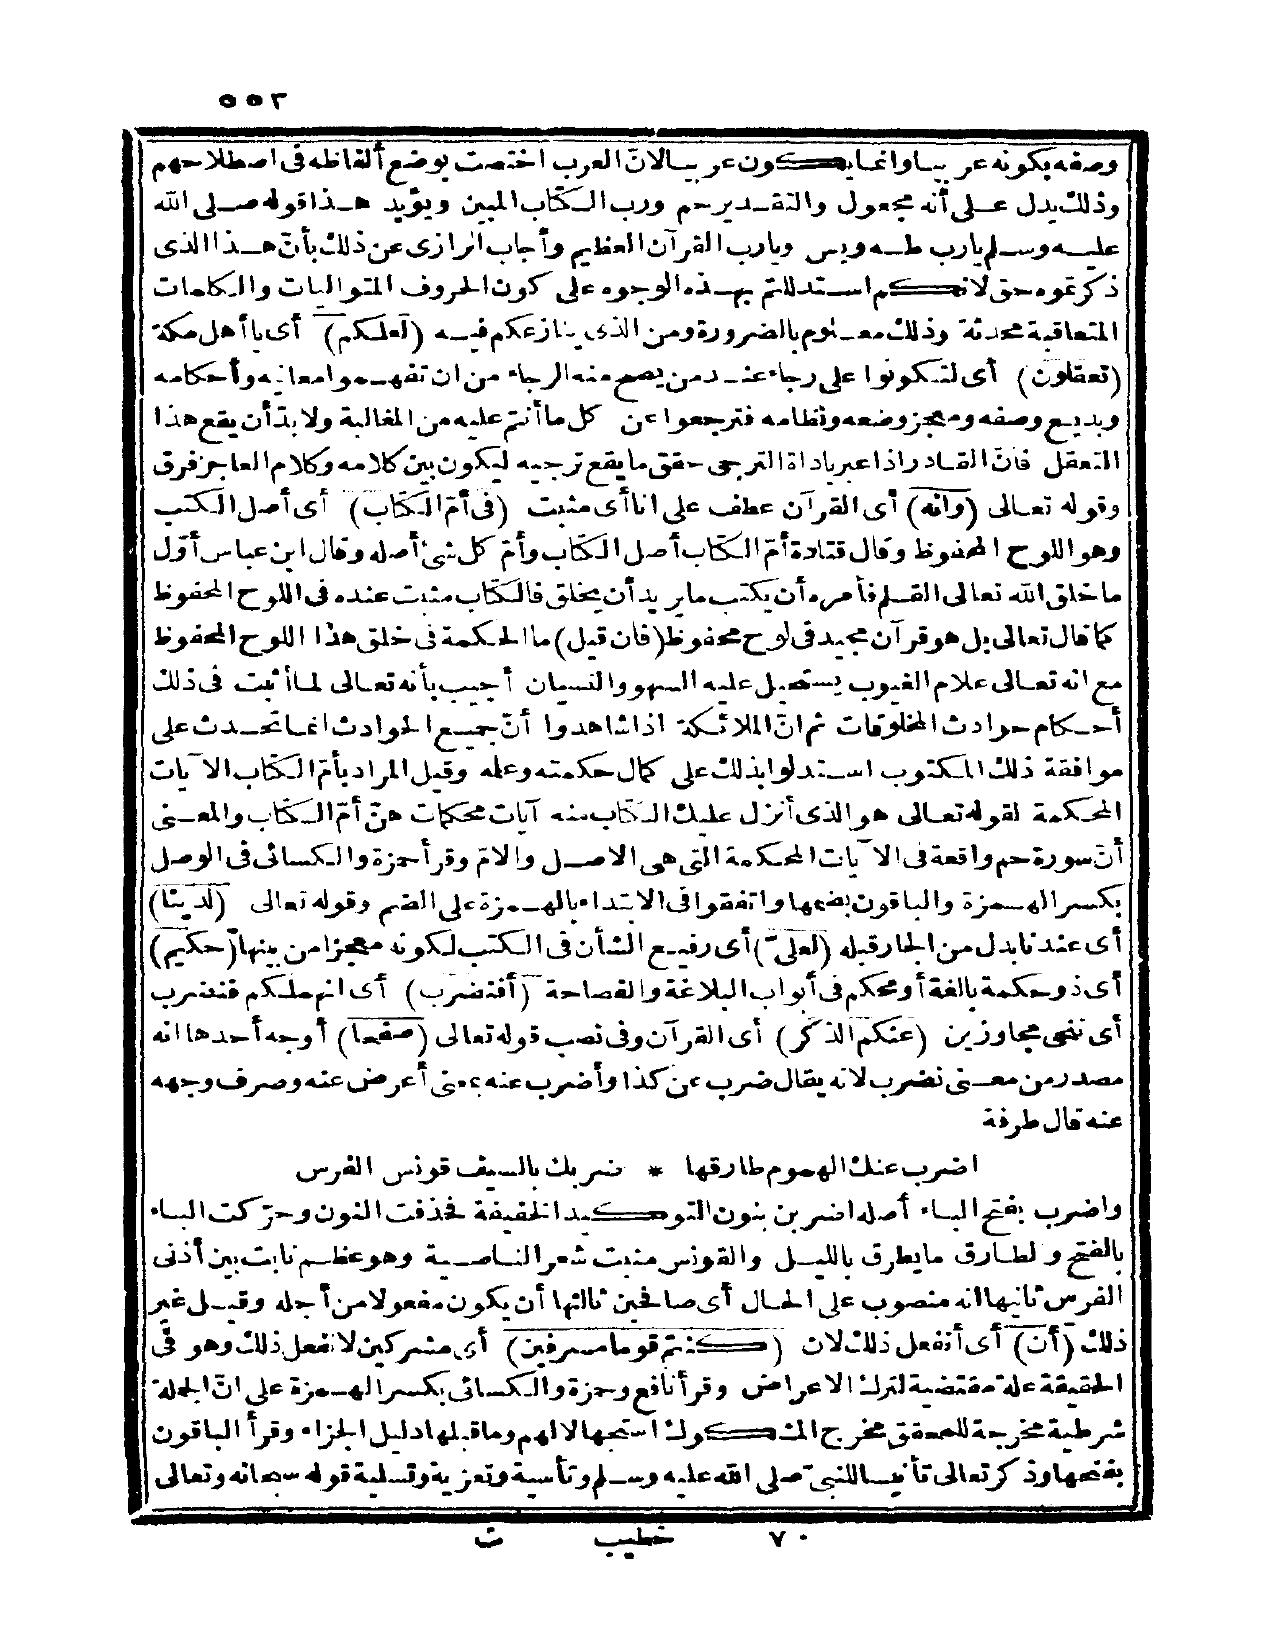 ٥٥٣
وصفه بكونه عربيا وانما يكون عربيا لان العرب اختصت بوضع ألفاظه فى اصطلاحهم
وذلك يدل على أنه مجعول والتقدير حم ورب الكتاب المبين ويؤيد هذا قوله صلى الله
عليه وسلم يارب طه ويس ويارب القرآن العظيم وأجاب الرازى عن ذلك بأن هذا الذى
ذكرتموه حق لانكم استدللتم بهذه الوجوه على كون الحروف المتواليات والكلمات
المتعاقبة محدثة وذلك معلوم بالضرورة ومن الذى ينازعكم فيه (لعلكم) أى يا أهل مكة
(تعقلون) أى لتكونوا على رجاء عند من يصح منه الرجاء من ان تفهموا معانيه وأحكامه
وبديع وصفه ومعجز وضعه ونظامه فترجعوا عن كل ما أنتم عليه من المغالبة ولا بدّ أن يقع هذا
التعقل فانّ القادر اذا عبر باداة الترجى حقق ما يقع ترجيه ليكون بين كلامه وكلام العاجز فرق
وقوله تعالى (وانه) أى القرآن عطف على انا أى مثبت (فى أمّ الكتاب) أى أصل الكتب
وهو اللوح المحفوظ وقال قتادة أمّ الكتاب أصل الكتاب وأمّ كل شئ أصله وقال ابن عباس أوّل
ما خلق الله تعالى القلم فأمره أن يكتب ما يريد أن يخلق فالكتاب مثبت عنده فى اللوح المحفوظ
كما قال تعالى بل هو قرآن مجيد فى لوح محفوظ (فان قيل) ما الحكمة فى خلق هذا اللوح المحفوظ
مع انه تعالى علام الغيوب يستحيل عليه السهو والنسيان أجيب بأنه تعالى لما أثبت فى ذلك
أحكام حوادث المخلوقات ثم انّ الملائكة اذا شاهدوا أنّ جميع الحوادث انما تحدث على
موافقة ذلك المكتوب استدلوا بذلك على كمال حكمته وعلمه وقيل المراد بأمّ الكتاب الآيات
المحكمة لقوله تعالى هو الذى أنزل عليك الكتاب منه آيات محكمات هنّ أمّ الكتاب والمعنى
أنّ سورة حم واقعة فى الآيات المحكمة التى هى الاصل والامّ وقرأ حمزة والكسائى فى الوصل
بكسر الهمزة والباقون بضمها واتفقوا فى الابتداء بالهمزة على الضم وقوله تعالى (لدينا)
أى عندنا بدل من الجار قبله (لعلىّ) أى رفيع الشأن فى الكتب لكونه معجزا من بينها (حكيم)
أى ذو حكمة بالغة أو محكم فى أبواب البلاغة والفصاحة (أفنضرب) أى انهملكم فنضرب
أى ننحى مجاوزين (عنكم الذكر) أى القرآن وفى نصب قوله تعالى (صفحا) أوجه أحدها انه
مصدر من معنى نضرب لانه يقال ضرب عن كذا وأضرب عنه بمعنى أعرض عنه وصرف وجهه
عنه قال طرفة
اضرب عنك الهموم طارقها * ضربك بالسيف قونس الفرس
واضرب بفتح الباء أصله اضربن بنون التوكيد الخفيفة فحذفت النون وحرّكت الباء
بالفتح والطارق ما يطرق بالليل والقونس منبت شعر الناصية وهو عظم نابت بين أذنى
الفرس ثانيها انه منصوب على الحال أى صافحين ثالثها أن يكون مفعولا من أجله وقيل غير
ذلك (أن) أى أنفعل ذلك لان (كنتم قوما مسرفين) أى مشركين لا نفعل ذلك وهو فى
الحقيقة علة مقتضية لترك الاعراض وقرأ نافع وحمزة والكسائى بكسر الهمزة على انّ الجملة
شرطية مخرجة للمحقق مخرج المشكوك استجهالا لهم وما قبلها دليل الجزاء وقرأ الباقون
بفتحها وذكر تعالى تأنيسا للنبىّ صلى الله عليه وسلم وتأسية وتعزية وتسلية قوله سبحانه وتعالى
٧٠ خطيب ت